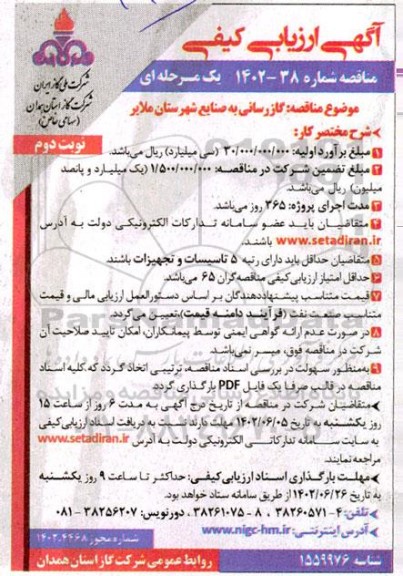 آگهی ارزیابی کیفی
مناقصه شماره ۳۸-۱۴۰۲ یک مرحله ای
شرکت ملی گاز ایران
شرکت گاز استان همدان
(سهامی خاص)
نوبت دوم
موضوع مناقصه: گازرسانی به صنایع شهرستان ملایر
شرح مختصر کار:
۱ مبلغ برآورد اولیه: ۳۰/۰۰۰/۰۰۰/۰۰۰ (سی میلیارد) ریال می‌باشد.
۲ مبلغ تضمین شرکت در مناقصه: ۱/۵۰۰/۰۰۰/۰۰۰ (یک میلیارد و پانصد
میلیون) ریال می‌باشد.
۳ مدت اجرای پروژه: ۳۶۵ روز می‌باشد.
۴ متقاضیان باید عضو سامانه تدارکات الکترونیکی دولت به آدرس
www.setadiran.ir باشند.
۵ متقاضیان حداقل باید دارای رتبه ۵ تاسیسات و تجهیزات باشند.
۶ حداقل امتیاز ارزیابی کیفی مناقصه‌گران ۶۵ می‌باشد.
۷ قیمت متناسب پیشنهاددهندگان بر اساس دستورالعمل ارزیابی مالی و قیمت
متناسب صنعت نفت (فرآیند دامنه قیمت)، تعیین می‌گردد.
۸ در صورت عدم ارائه گواهی ایمنی توسط پیمانکاران، امکان تایید صلاحیت آن
شرکت در مناقصه فوق، میسر نمی‌باشد.
۹ به‌منظور سهولت در بررسی اسناد مناقصه، ترتیبی اتخاذ گردد که کلیه اسناد
مناقصه در قالب صرفا یک فایل PDF بارگذاری گردد.
متقاضیان شرکت در مناقصه از تاریخ درج آگهی به مدت ۶ روز از ساعت ۱۵
روز یکشنبه به تاریخ ۱۴۰۲/۰۶/۰۵ مهلت دارند نسبت به دریافت اسناد ارزیابی کیفی
به سایت سامانه تدارکاتی الکترونیکی دولت به آدرس www.setadiran.ir
مراجعه نمایند.
مهلت بارگذاری اسناد ارزیابی کیفی: حداکثر تا ساعت ۹ روز یکشنبه
به تاریخ ۱۴۰۲/۰۶/۲۶ از طریق سامانه ستاد خواهد بود.
تلفن: ۴-۳۸۲۶۰۵۷۱ ، ۸-۳۸۲۶۱۰۷۵ ، دورنویس: ۳۸۲۵۶۲۰۷-۰۸۱
آدرس اینترنتی: www.nigc-hm.ir
شماره مجوز ۱۴۰۲.۴۴۶۸
شناسه ۱۵۵۹۹۷۶ روابط عمومی شرکت گاز استان همدان